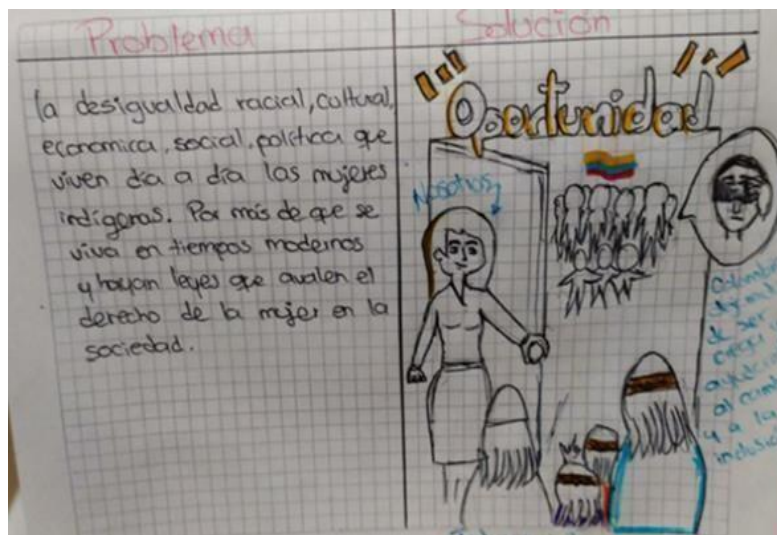 Problema
la desigualdad racial, cultural,
economica, social, politica que
viven dia a día las mujeres
indígenas. Por más de que se
viva en tiempos modernos
y hayan leyes que avalen el
derecho de la mujer en la
sociedad.
Solución
Oportunidad
Nosotros
de ser
al
y a la